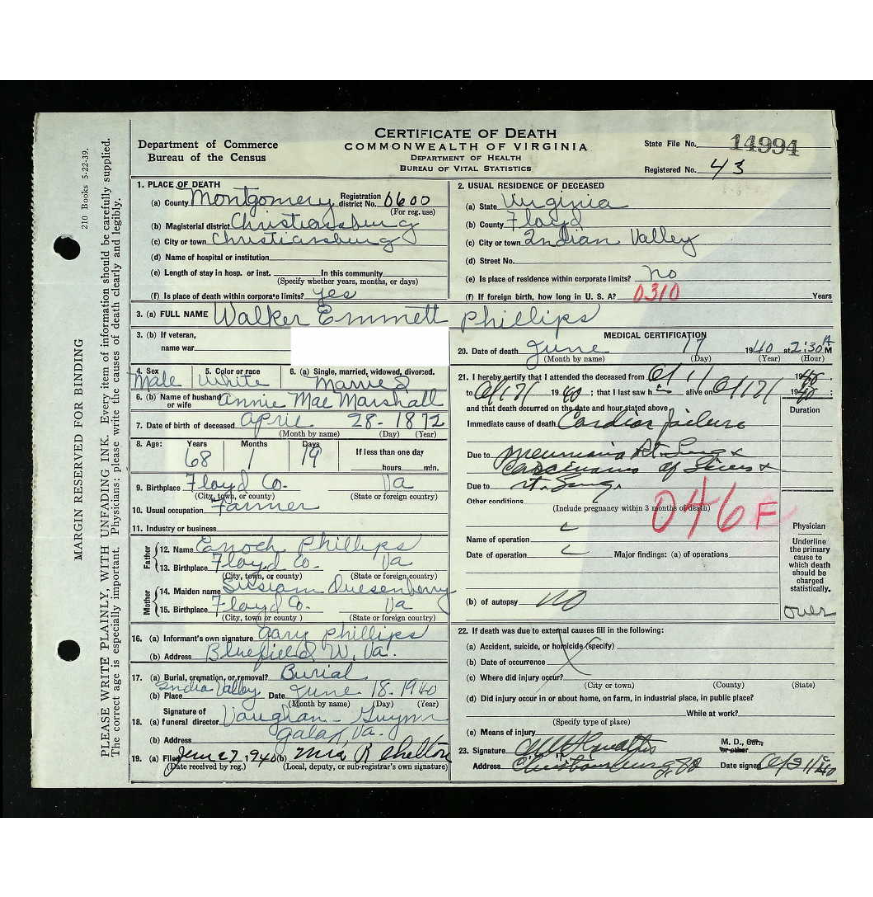 210 Books 5-22-39.
MARGIN RESERVED FOR BINDING
PLEASE WRITE PLAINLY, WITH UNFADING INK. Every item of information should be carefully supplied.
The correct age is especially important. Physicians: please write the causes of death clearly and legibly.
CERTIFICATE OF DEATH
COMMONWEALTH OF VIRGINIA
DEPARTMENT OF HEALTH
BUREAU OF VITAL STATISTICS
Department of Commerce
Bureau of the Census
State File No. 14994
Registered No. 43
1. PLACE OF DEATH
(a) County Montgomery Registration district No. 0600
(For reg. use)
(b) Magisterial district Christiansburg
(c) City or town Christiansburg
(d) Name of hospital or institution
(e) Length of stay in hosp. or inst. In this community
(Specify whether years, months, or days)
(f) Is place of death within corporate limits? yes
2. USUAL RESIDENCE OF DECEASED
(a) State Virginia
(b) County Floyd
(c) City or town Indian Valley
(d) Street No.
(e) Is place of residence within corporate limits? no
(f) If foreign birth, how long in U. S. A.? Years
0310
3. (a) FULL NAME Walker Emmett Phillips
3. (b) If veteran,
name war
4. Sex Male
5. Color or race White
6. (a) Single, married, widowed, divorced. Married
6. (b) Name of husband or wife Annie Mae Marshall
7. Date of birth of deceased April 28 - 1872
(Month by name) (Day) (Year)
8. Age: Years Months Days If less than one day
68 1 19 hours min.
9. Birthplace Floyd Co. Va
(City, town, or county) (State or foreign country)
10. Usual occupation Farmer
11. Industry or business
Father
12. Name Enoch Phillips
13. Birthplace Floyd Co. Va
(City, town, or county) (State or foreign country)
Mother
14. Maiden name Quesenberry
15. Birthplace Floyd Co. Va
(City, town, or county) (State or foreign country)
16. (a) Informant's own signature Gary Phillips
(b) Address Bluefield W. Va.
17. (a) Burial, cremation, or removal? Burial
(b) Place Indian Valley Date June 18 - 1940
(Month by name) (Day) (Year)
18. (a) Signature of funeral director Vaughan - Guynn
(b) Address Galax, Va.
19. (a) Filed June 27, 1940 (b) Mrs R Shelton
(Date received by reg.) (Local, deputy, or sub-registrar's own signature)
MEDICAL CERTIFICATION
20. Date of death June 17 1940 at 2:30 A M
(Month by name) (Day) (Year) (Hour)
21. I hereby certify that I attended the deceased from
to 1940; that I last saw h alive on
and that death occurred on the date and hour stated above.
Duration
Immediate cause of death Cardiac failure
Due to pneumonia Rt. Lung &
carcinoma of &
Due to rt. Lung.
Other conditions
(Include pregnancy within 3 months of death)
046 F
Name of operation
Date of operation Major findings: (a) of operations
(b) of autopsy NO
Physician
Underline
the primary
cause to
which death
should be
charged
statistically.
over
22. If death was due to external causes fill in the following:
(a) Accident, suicide, or homicide (specify)
(b) Date of occurrence
(c) Where did injury occur?
(City or town) (County) (State)
(d) Did injury occur in or about home, on farm, in industrial place, in public place?
While at work?
(Specify type of place)
(e) Means of injury
23. Signature M. D.,
Address Christiansburg Date signed